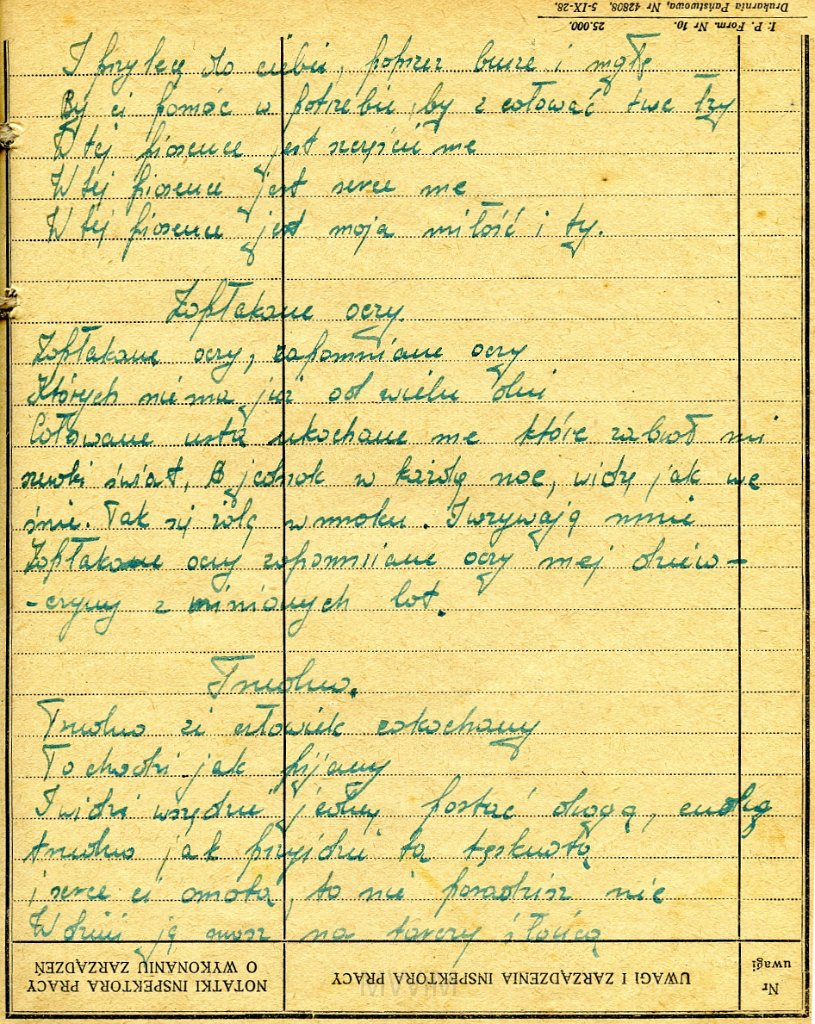 I. P. Form. Nr 10. 25.000.
Drukarnia Państwowa, Nr 42808. 5-IX-28.
I przylecę do ciebie, poprzez burze i mgłę
By ci pomóc w potrzebie, by z całować twe łzy
W tej piosence jest szczęście me
W tej piosence jest serce me
W tej piosence jest moja miłość i ty.
Zapłakane oczy.
Zapłakane oczy, zapomniane oczy
Których nie ma już od wielu dni
Całowane usta ukochane me które zabrał mi
szeroki świat, A jednak w każdą noc, widzę jak we
śnie. Tak się żalą w mroku. I wzywają mnie
Zapłakane oczy zapomniane oczy mej dziew-
-czyny z minionych lat.
Trudno.
Trudno gdy człowiek zakochany
To chodzi jak pijany
I widzi wszędzie jedną postać drogą, cudną
trudno jak przyjdzie ta tęsknota
i serce ci omota, to nie poradzisz nic
W dzień ją masz na tarczy słońca
NOTATKI INSPEKTORA PRACY
O WYKONANIU ZARZĄDZEŃ
UWAGI I ZARZĄDZENIA INSPEKTORA PRACY
Nr
uwagi